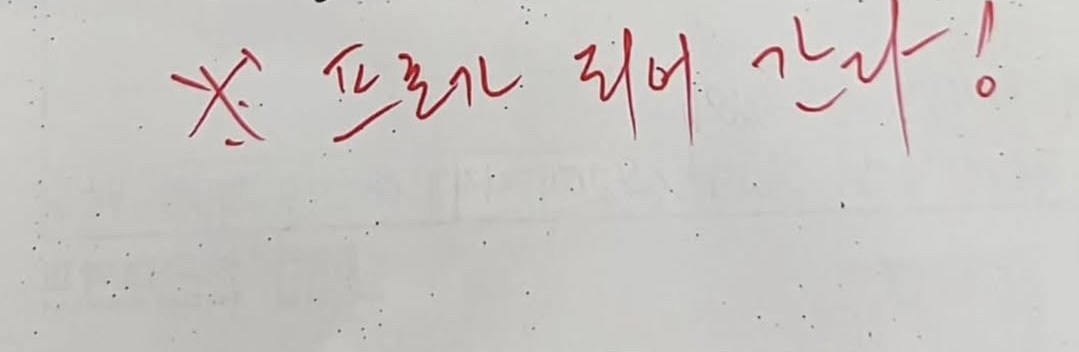 ※ 프로가 되어 간다!